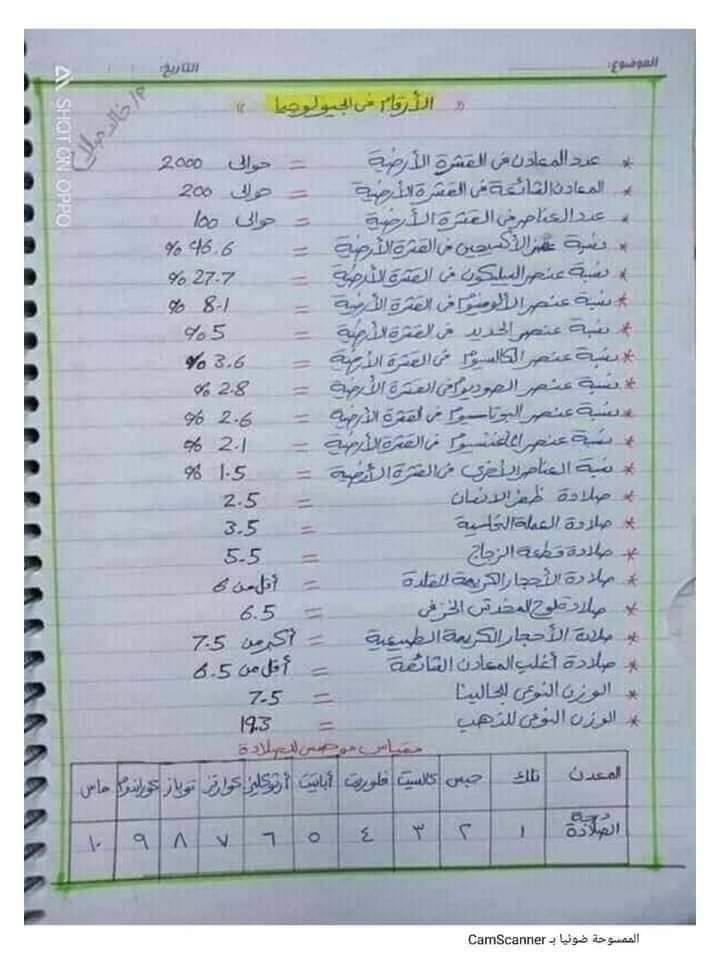 الموضوع:
التاريخ: / /
م/ خالد
SHOT ON OPPO
« الأرقام فى الجيولوجيا »
* عدد المعادن فى القشرة الأرضية = حوالى 2000
* المعادن الشائعة فى القشرة الأرضية = حوالى 200
* عدد العناصر فى القشرة الأرضية = حوالى 100
* نسبة عنصر الأكسجين فى القشرة الأرضية = 46.6 %
* نسبة عنصر السليكون فى القشرة الأرضية = 27.7 %
* نسبة عنصر الألومنيوم فى القشرة الأرضية = 8.1 %
* نسبة عنصر الحديد فى القشرة الأرضية = 5 %
* نسبة عنصر الكالسيوم فى القشرة الأرضية = 3.6 %
* نسبة عنصر الصوديوم فى القشرة الأرضية = 2.8 %
* نسبة عنصر البوتاسيوم فى القشرة الأرضية = 2.6 %
* نسبة عنصر الماغنسيوم فى القشرة الأرضية = 2.1 %
* نسبة العناصر الأخرى فى القشرة الأرضية = 1.5 %
* صلادة ظفر الانسان = 2.5
* صلادة العملة النحاسية = 3.5
* صلادة قطعة الزجاج = 5.5
* صلادة الأحجار الكريمة المقلدة = أقل من 6
* صلادة لوح المخدش الخزفى = 6.5
* صلادة الأحجار الكريمة الطبيعية = أكبر من 7.5
* صلادة أغلب المعادن الشائعة = أقل من 6.5
* الوزن النوعى للجالينا = 7.5
* الوزن النوعى للذهب = 19.3
مقياس موهس للصلادة
المعدن تلك جبس كالسيت فلوريت أباتيت أرثوكليز كوارتز توباز كوراندوم ماس
درجة الصلادة ١ ٢ ٣ ٤ ٥ ٦ ٧ ٨ ٩ ١٠
الممسوحة ضوئيا بـ CamScanner